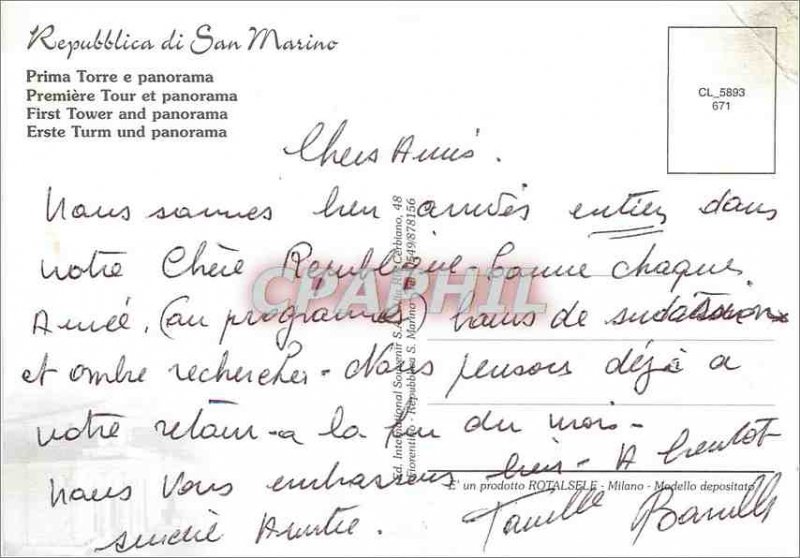 Repubblica di San Marino
Prima Torre e panorama
Première Tour et panorama
First Tower and panorama
Erste Turm und panorama
CL_5893
671
Chers Amis.
Nous sommes bien arrivés entiers dans
notre Chère République - comme chaque
Année. (au programme) bains de sudation
et ombre recherchée - Nous pensons déjà a
notre retour - a la fin du mois -
nous vous embrassons bien - A bientot
sincère Amitié.
Famille
CPAPHIL
Ed. International Souvenir S.A. Via Rio Cerbiano, 48
Fiorentino - Repubblica S. Marino - 0549/878156
E' un prodotto ROTALSELE - Milano - Modello depositato